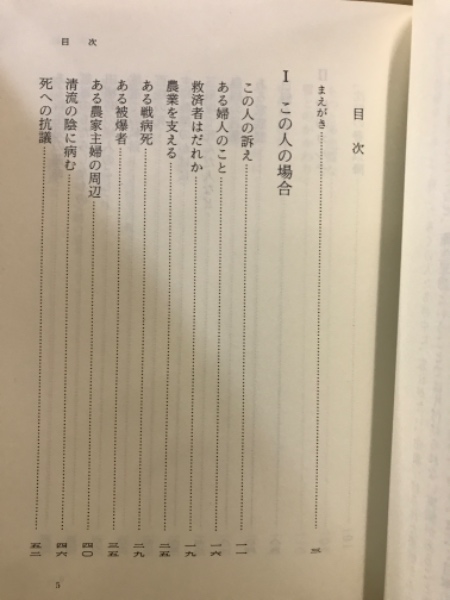 目次
まえがき……三
Ⅰ この人の場合
この人の訴え……一一
ある婦人のこと……一六
救済者はだれか……一九
農業を支える……二五
ある戦病死……二九
ある被爆者……三五
ある農家主婦の周辺……四〇
清流の陰に病む……四六
死への抗議……五二
目次
5